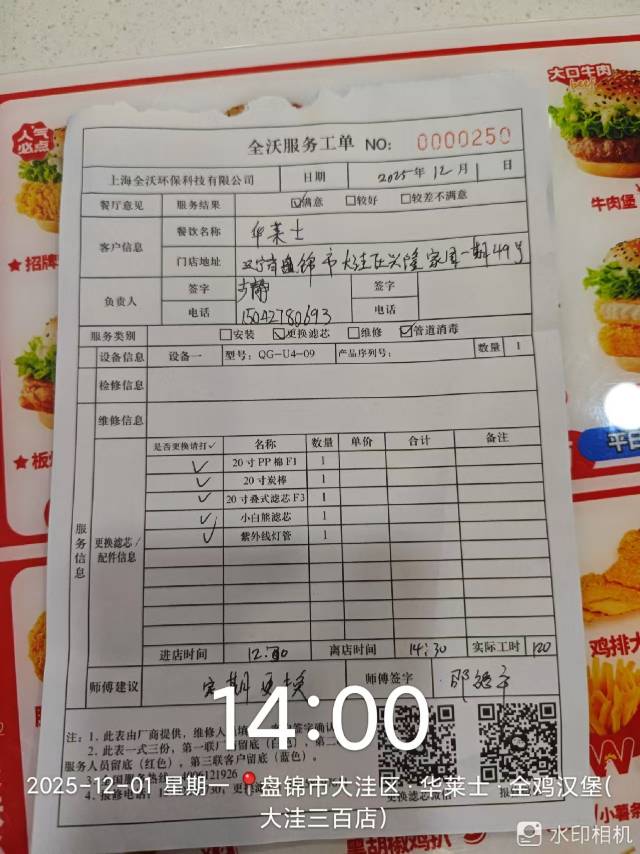 大口牛肉
beef
人气
必点
全沃服务工单 NO: 0000250
上海全沃环保科技有限公司 日期 2025年12月1日
餐厅意见 服务结果 ☑满意 □较好 □较差不满意
客户信息 餐饮名称 华莱士
门店地址 辽宁省盘锦市大洼区兴隆家园一期49号
负责人 签字 签字
电话 15042780693 电话
服务类别 □安装 ☑更换滤芯 □维修 ☑管道消毒
设备信息 设备一 型号: QG-U4-09 产品序列号: 数量 1
检修信息
维修信息
服务信息
更换滤芯/配件信息
是否更换请打✓ 名称 数量 单价 合计 备注
✓ 20寸PP棉F1 1
✓ 20寸炭棒 1
✓ 20寸叠式滤芯F3 1
✓ 小白熊滤芯 1
✓ 紫外线灯管 1
进店时间 12:00 离店时间 14:30 实际工时 120
师傅建议 定期更换 师傅签字
注: 1、此表由厂商提供, 维修人
2、此表一式三份, 第一联厂
服务人员留底(红色), 第三联客户留底(蓝色)。
14:00
2025-12-01 星期一 盘锦市大洼区·华莱士·全鸡汉堡(
大洼三百店)
更换滤芯微信
牛肉堡
招牌
板
平日
鸡排大
(小薯条
黑胡椒鸡扒
水印相机